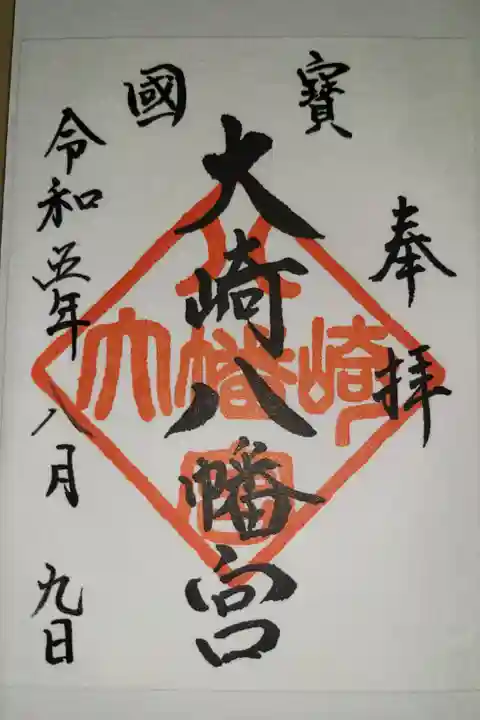 奉拝
國寶
大崎八幡宮
令和五年八月九日
大崎八幡宮